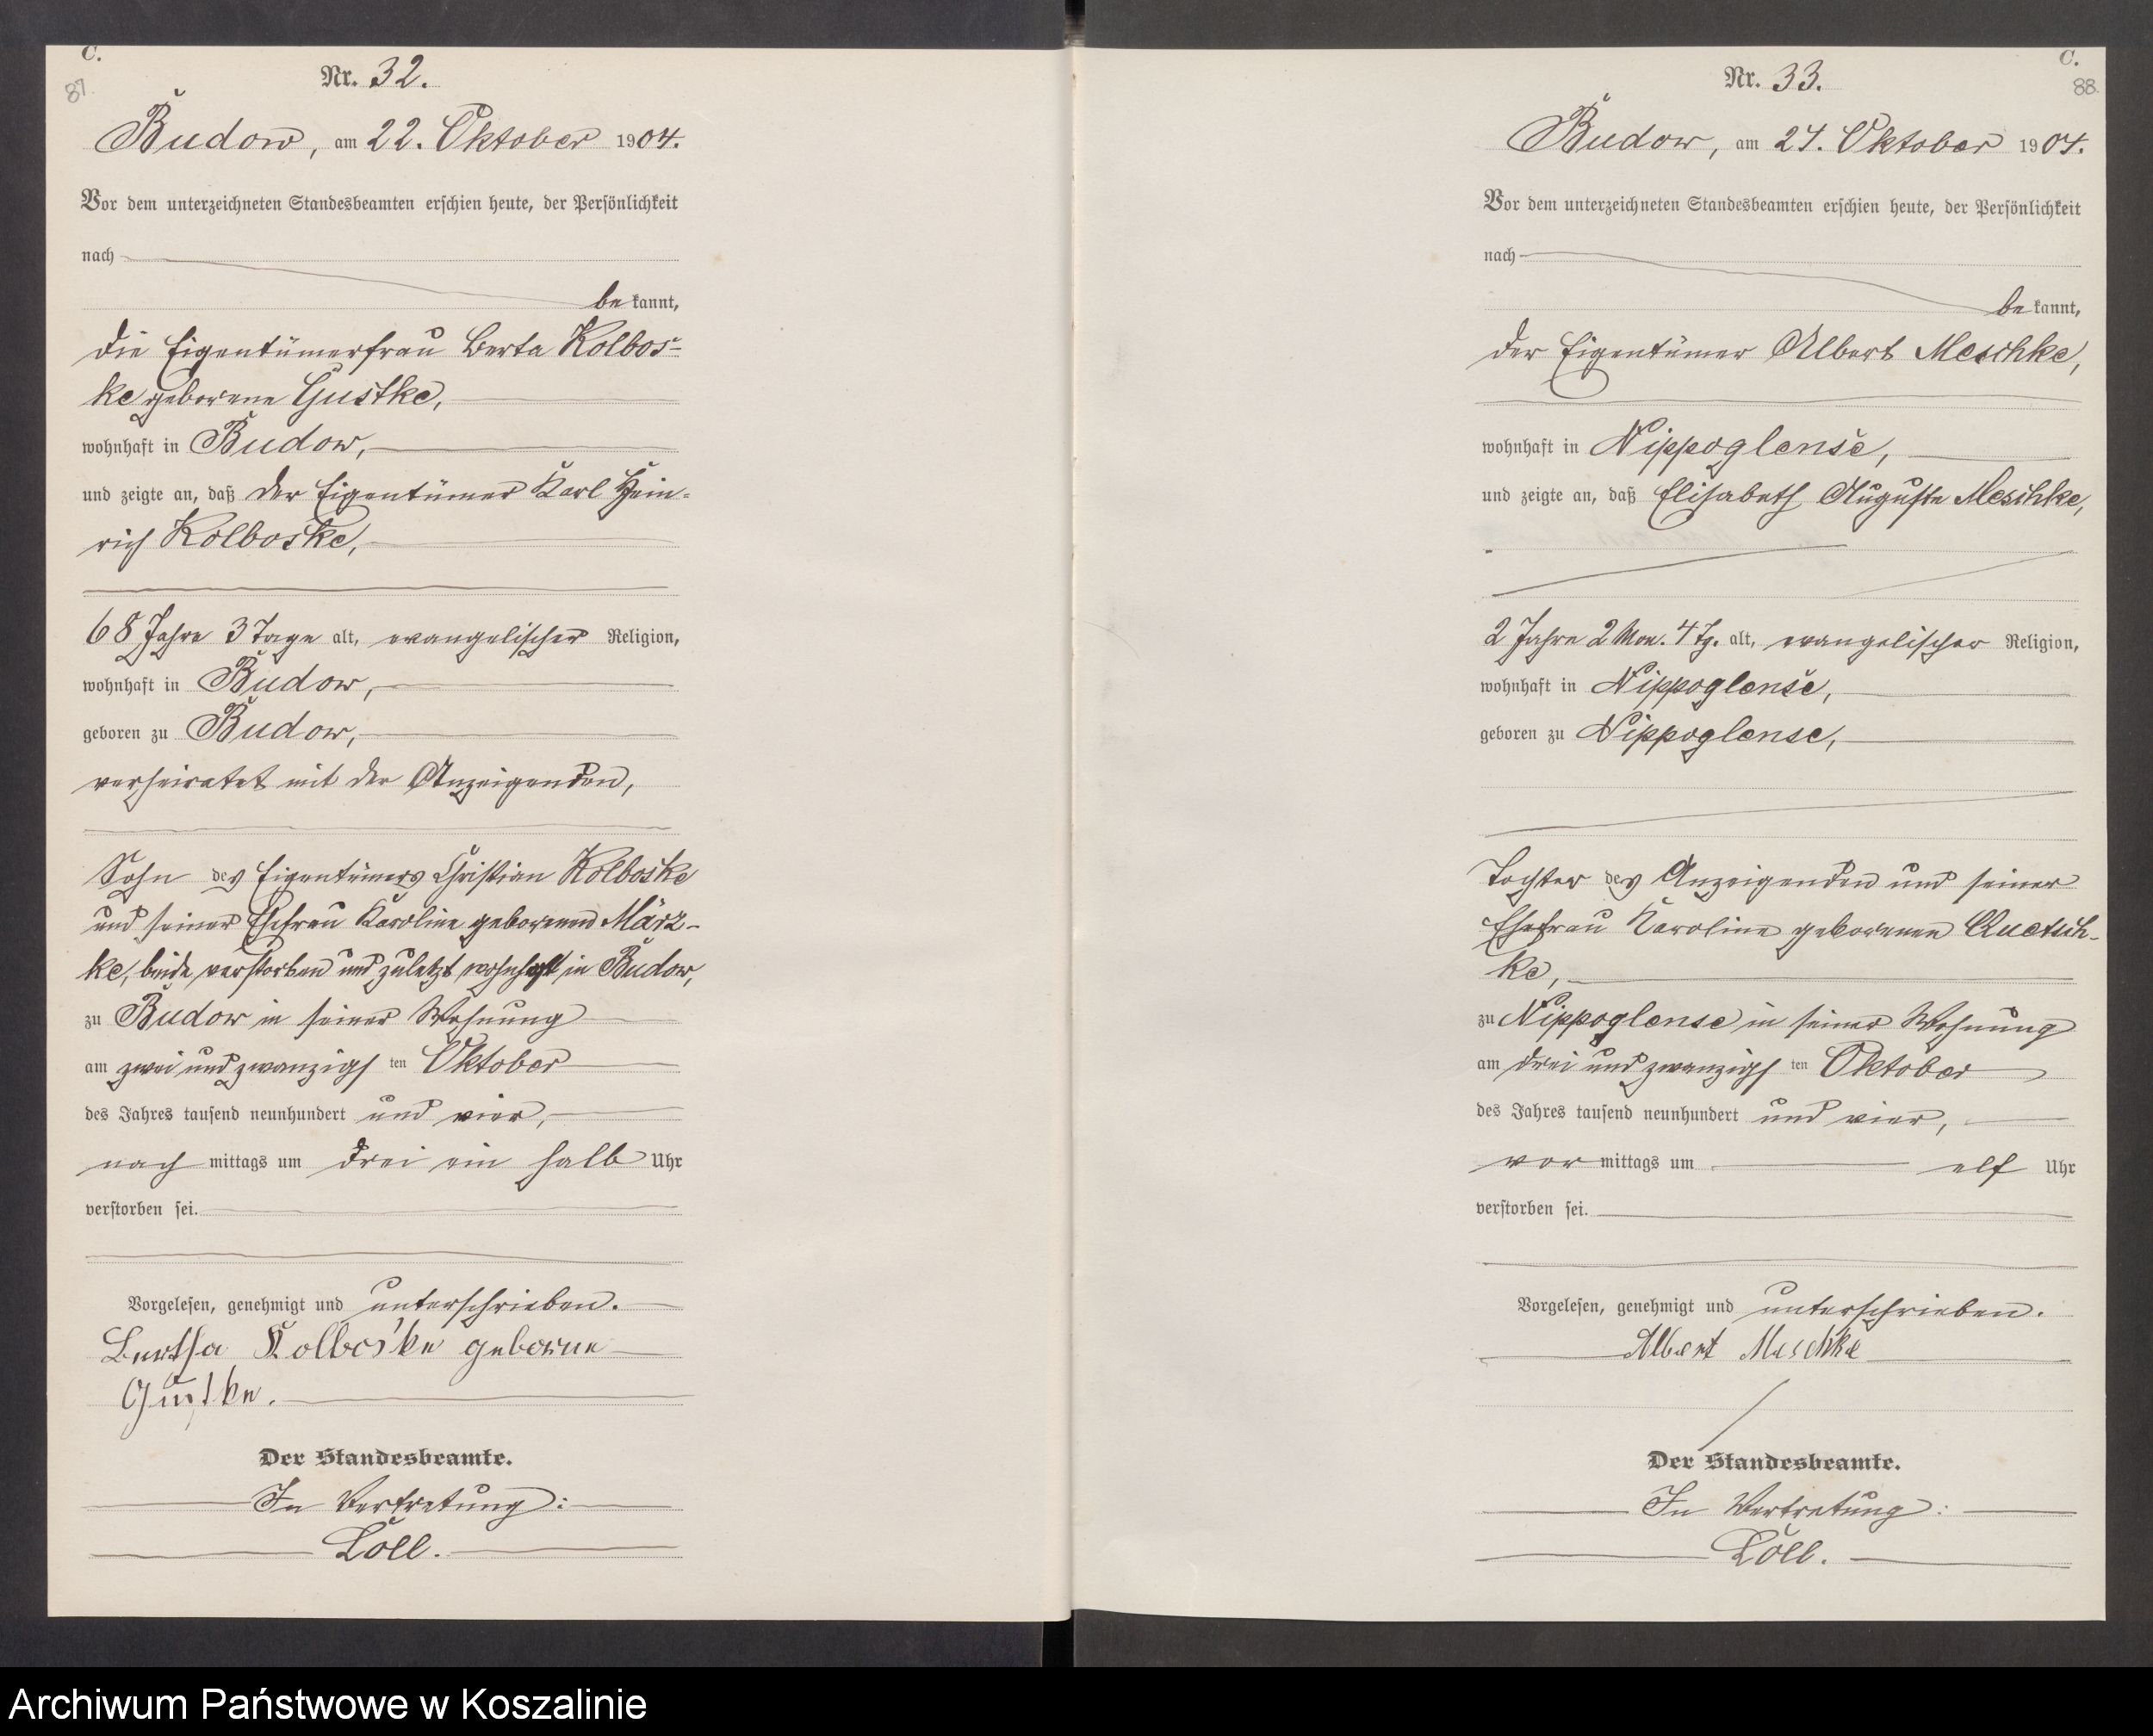 C.
87.
Nr. 32.
Budow, am 22. Oktober 1904.
Vor dem unterzeichneten Standesbeamten erschien heute, der Persönlichkeit
nach
bekannt,
die Eigentümerfrau Berta Kolbos-
ke geborene Gustke,
wohnhaft in Budow,
und zeigte an, daß der Eigentümer Karl Hein-
rich Kolboske,
68 Jahre 3 Tage alt, evangelischer Religion,
wohnhaft in Budow,
geboren zu Budow,
verheiratet mit der Anzeigenden,
Sohn des Eigentümers Christian Kolboske
und seiner Ehefrau Karoline geborenen März-
ke, beide verstorben und zuletzt wohnhaft in Budow,
zu Budow in seiner Wohnung
am zwei und zwanzigsten Oktober
des Jahres tausend neunhundert und vier,
nachmittags um drei ein halb Uhr
verstorben sei.
Vorgelesen, genehmigt und unterschrieben.
Bertha Kolboske geborne
Gustke.
Der Standesbeamte.
In Vertretung:
Löll.
C.
88.
Nr. 33.
Budow, am 24. Oktober 1904.
Vor dem unterzeichneten Standesbeamten erschien heute, der Persönlichkeit
nach
bekannt,
der Eigentümer Albert Meschke,
wohnhaft in Nippoglense,
und zeigte an, daß Elisabeth Auguste Meschke,
2 Jahre 2 Mon. 4 Tg. alt, evangelischer Religion,
wohnhaft in Nippoglense,
geboren zu Nippoglense,
Tochter des Anzeigenden und seiner
Ehefrau Karoline geborenen Quetsch-
ke,
zu Nippoglense in seiner Wohnung
am drei und zwanzigsten Oktober
des Jahres tausend neunhundert und vier,
vormittags um elf Uhr
verstorben sei.
Vorgelesen, genehmigt und unterschrieben.
Albert Meschke
Der Standesbeamte.
In Vertretung:
Löll.
Archiwum Państwowe w Koszalinie